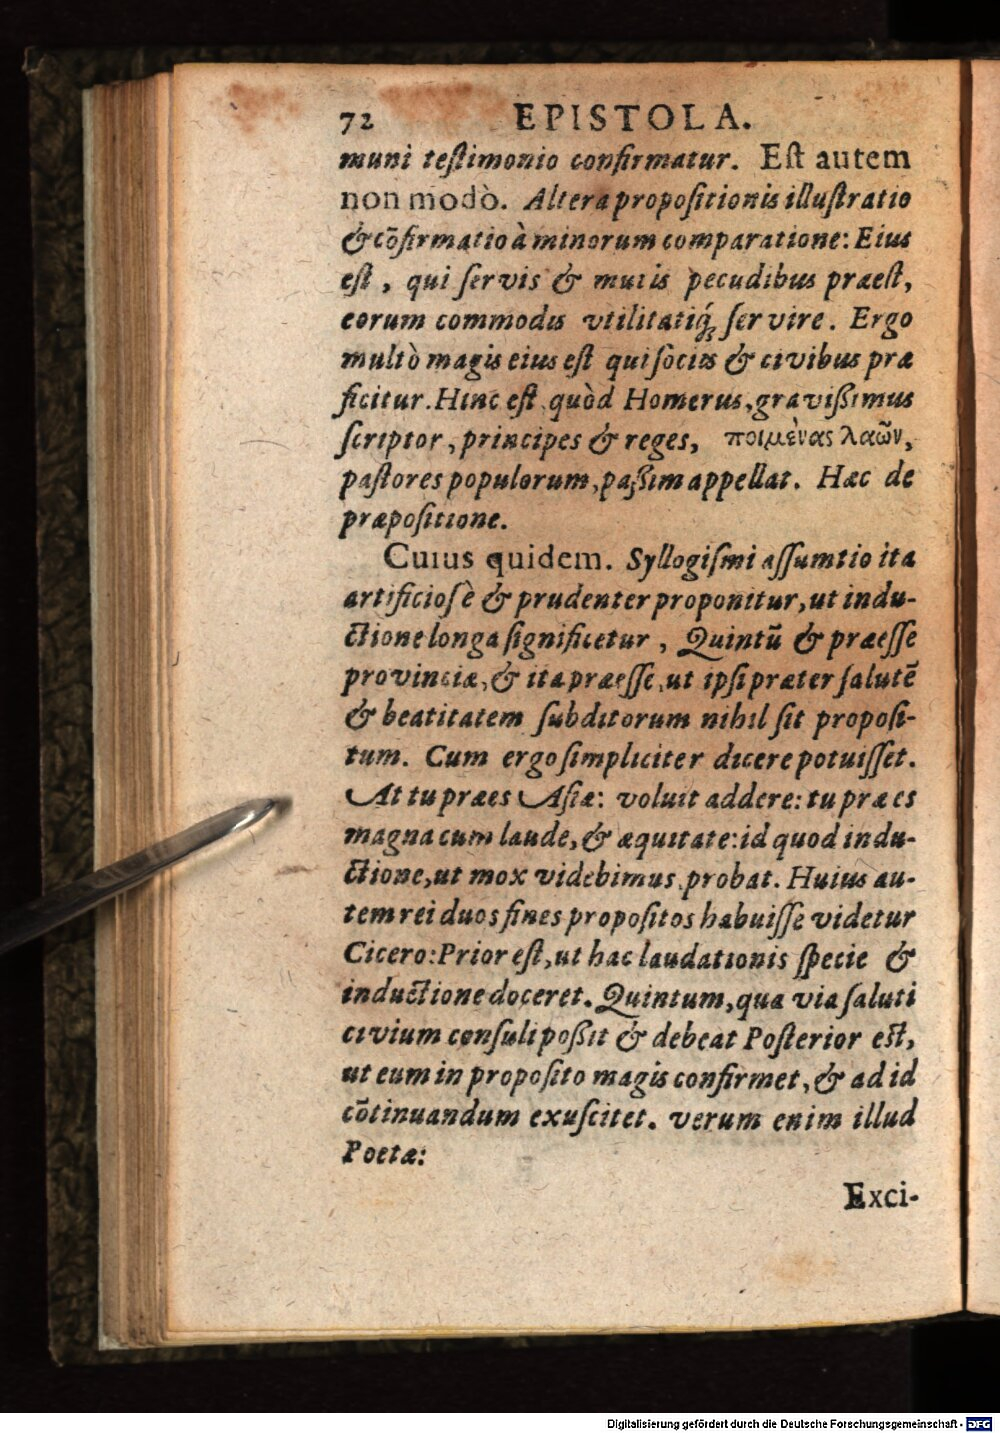 72 EPISTOLA.
muni teſtimonio confirmatur. Eſt autem
non modò. Altera propoſitionis illuſtratio
& cõfirmatio à minorum comparatione: Eius
eſt, qui ſervis & mutis pecudibus præeſt,
eorum commodis vtilitatiq́ꝫ ſervire. Ergo
multò magis eius eſt qui ſociis & civibus præ
ficitur. Hinc eſt quòd Homerus, gravißimus
ſcriptor, principes & reges, ποιμὲνας λαῶν,
paſtores populorum, paßim appellat. Hæc de
præpoſitione.
Cuius quidem. Syllogiſmi aſſumtio ita
artificioſè & prudenter proponitur, ut indu-
ctione longa ſignificetur, Quintũ & præeſſe
provinciæ, & ita præeſſe, ut ipſi præter ſalutẽ
& beatitatem ſubditorum nihil ſit propoſi-
tum. Cum ergo ſimpliciter dicere potuiſſet.
At tu præes Aſiæ: voluit addere: tu præes
magna cum laude, & æquitate: id quod indu-
ctione, ut mox videbimus, probat. Huius au-
tem rei duos fines propoſitos habuiſſe videtur
Cicero: Prior eſt, ut hac laudationis ſpecie &
inductione doceret. Quintum, qua via ſaluti
civium conſuli poßit & debeat Poſterior eſt,
ut eum in propoſito magis confirmet, & ad id
cõtinuandum exuſcitet. verum enim illud
Poetæ:
Exci-
Digitalisierung gefördert durch die Deutsche Forschungsgemeinschaft - DFG